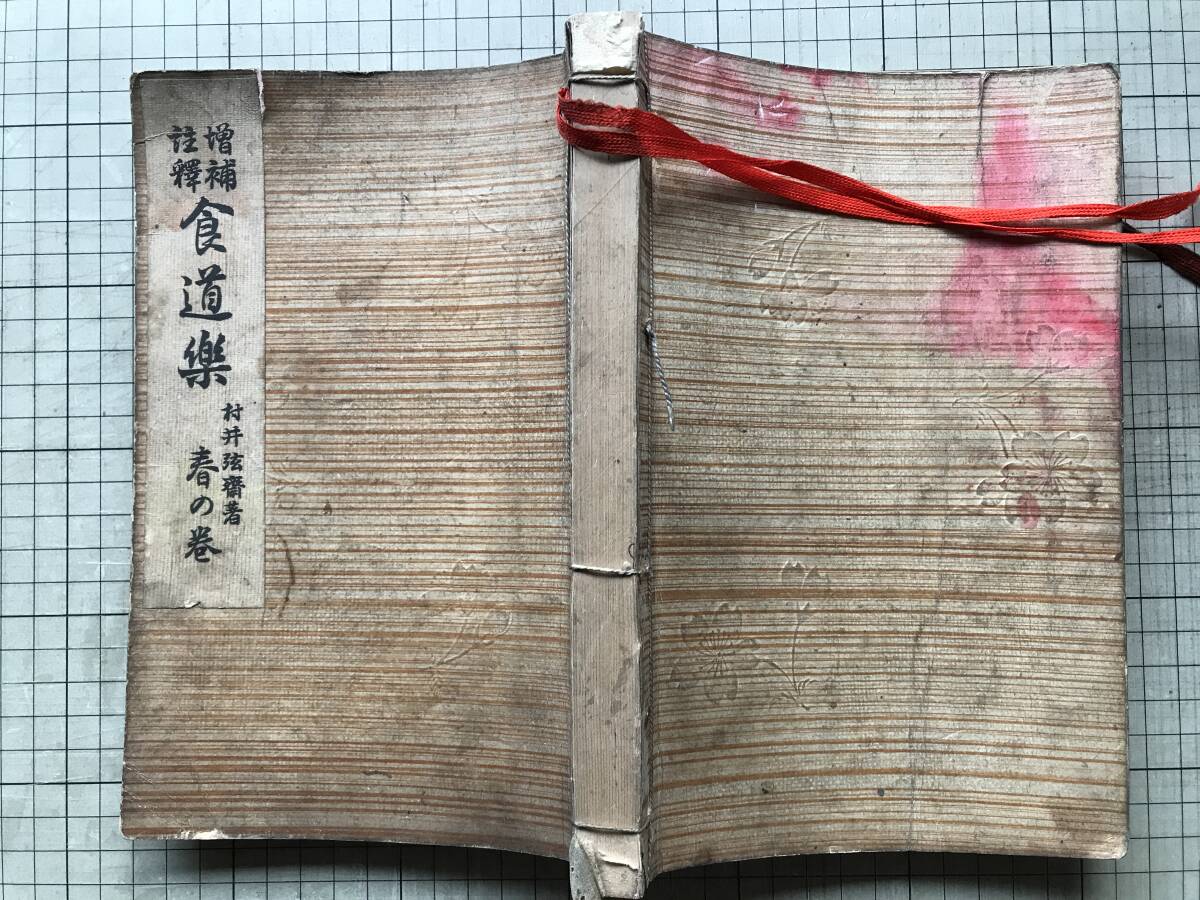 增補
註釋
食道樂
村井弦齋著
春の卷